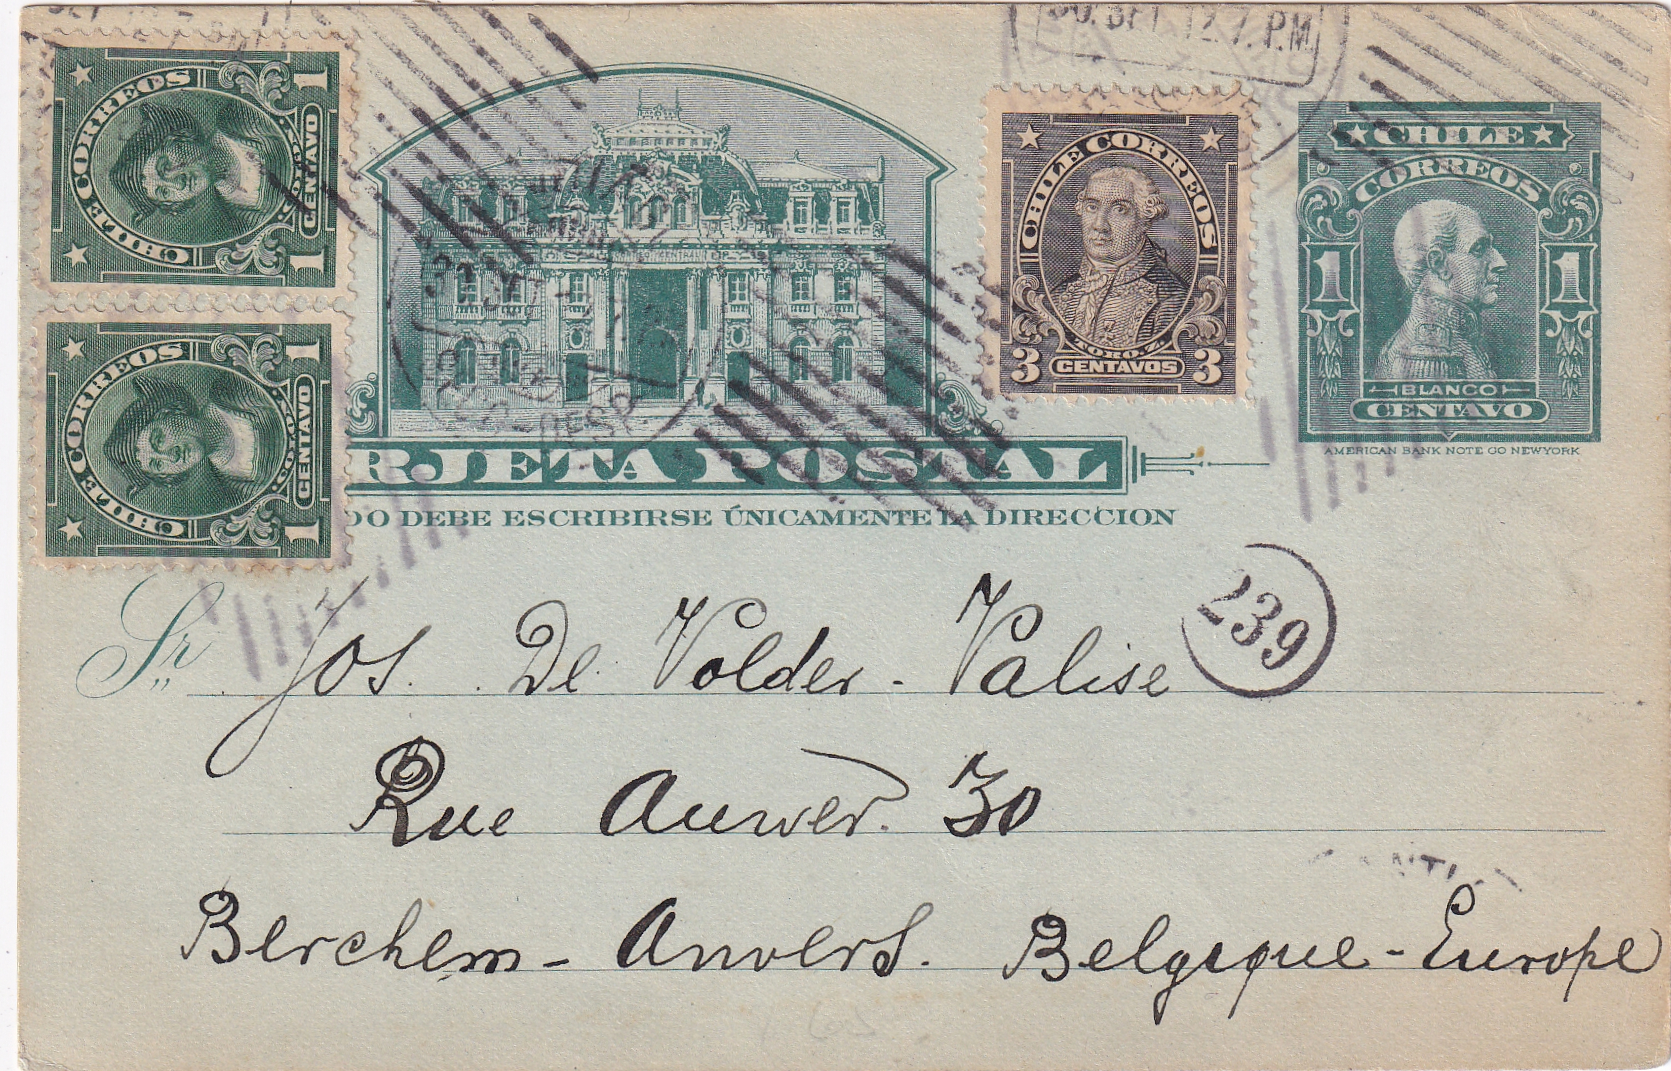 30. SET. 12. 7. P.M.
CHILE CORREOS
COLON
1 CENTAVO 1
CHILE CORREOS
COLON
1 CENTAVO 1
CHILE CORREOS
TORO Z.
3 CENTAVOS 3
CHILE
CORREOS
1 1
BLANCO
CENTAVO
AMERICAN BANK NOTE CO NEWYORK
RJETA POSTAL
DO DEBE ESCRIBIRSE ÚNICAMENTE LA DIRECCION
239
Sr. Jos. De Volder - Valise
Rue Auwer. 30
ANTI
Berchem - Anvers. Belgique - Europe